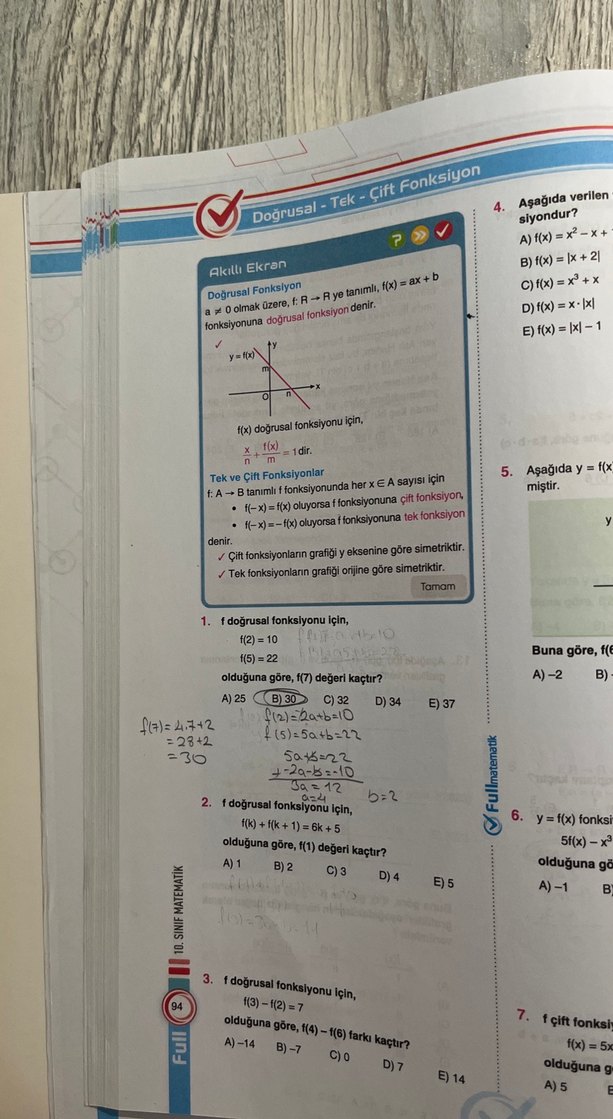 Doğrusal - Tek - Çift Fonksiyon
Akıllı Ekran
?
Doğrusal Fonksiyon
a ≠ 0 olmak üzere, f: R → R ye tanımlı, f(x) = ax + b
fonksiyonuna doğrusal fonksiyon denir.
y
y = f(x)
m
O
n
x
f(x) doğrusal fonksiyonu için,
x/n + f(x)/m = 1 dir.
Tek ve Çift Fonksiyonlar
f: A → B tanımlı f fonksiyonunda her x ∈ A sayısı için
• f(–x) = f(x) oluyorsa f fonksiyonuna çift fonksiyon,
• f(–x) = –f(x) oluyorsa f fonksiyonuna tek fonksiyon
denir.
✓ Çift fonksiyonların grafiği y eksenine göre simetriktir.
✓ Tek fonksiyonların grafiği orijine göre simetriktir.
Tamam
1. f doğrusal fonksiyonu için,
f(2) = 10
f(5) = 22
olduğuna göre, f(7) değeri kaçtır?
A) 25 B) 30 C) 32 D) 34 E) 37
f(2)=2a+b=10
f(5)=5a+b=22
5a+b=22
+-2a-b=-10
3a=12
a=4
b=2
f(7)=4.7+2
=28+2
=30
2. f doğrusal fonksiyonu için,
f(k) + f(k + 1) = 6k + 5
olduğuna göre, f(1) değeri kaçtır?
A) 1 B) 2 C) 3 D) 4 E) 5
3. f doğrusal fonksiyonu için,
f(3) – f(2) = 7
olduğuna göre, f(4) – f(6) farkı kaçtır?
A) –14 B) –7 C) 0 D) 7 E) 14
10. SINIF MATEMATİK
94
Full
Full matematik
4. Aşağıda verilen
siyondur?
A) f(x) = x² – x +
B) f(x) = |x + 2|
C) f(x) = x³ + x
D) f(x) = x · |x|
E) f(x) = |x| – 1
5. Aşağıda y = f(x
miştir.
y
Buna göre, f(6
A) –2 B)
6. y = f(x) fonksi
5f(x) – x³
olduğuna gö
A) –1 B
7. f çift fonksi
f(x) = 5x
olduğuna g
A) 5